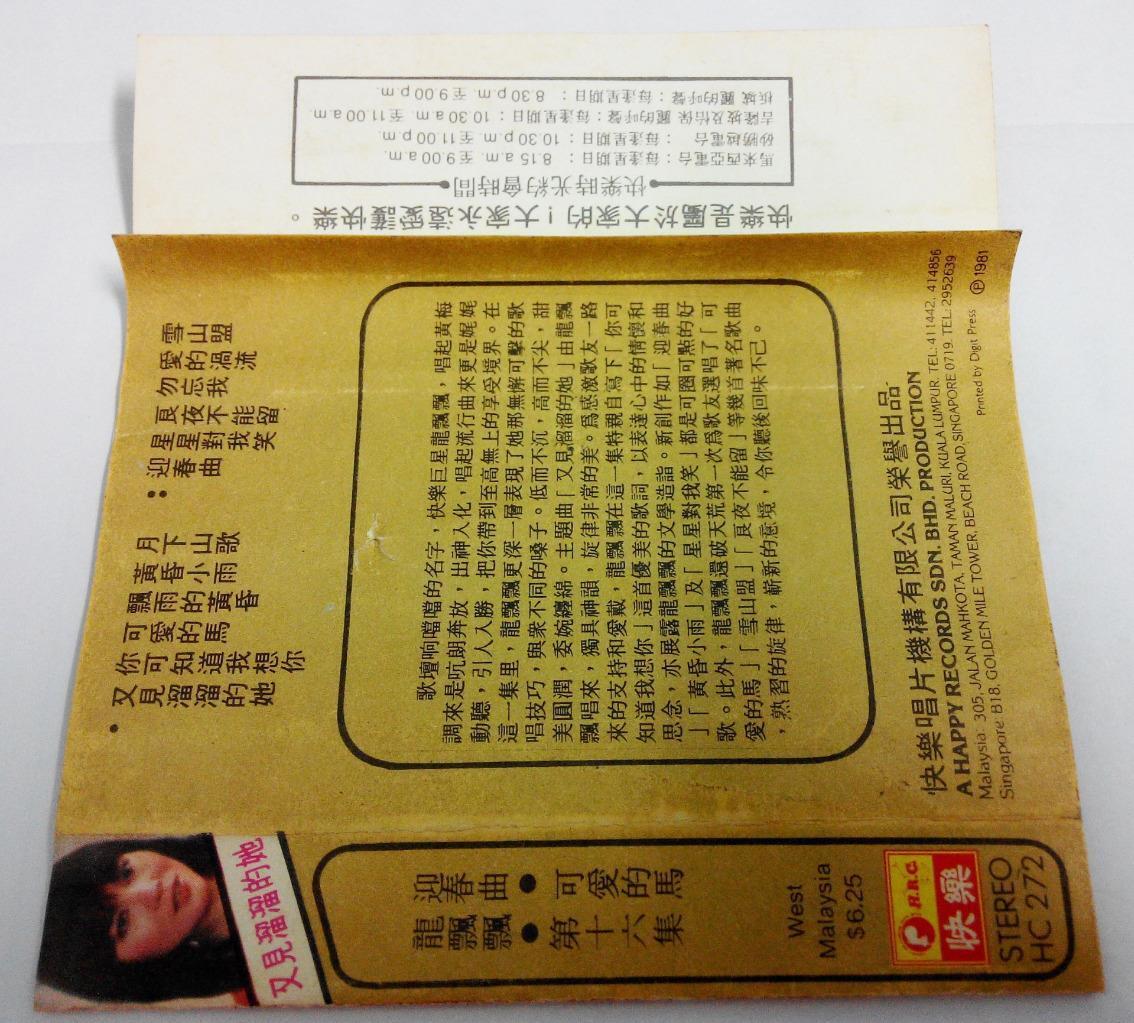 快樂是屬於大家的！大家永遠愛護快樂。
快樂時光約會時間
馬來西亞電台：每逢星期日：8.15 a.m. 至 9.00 a.m.
砂朥越電台：每逢星期日：10.30 p.m. 至 11.00 p.m.
吉隆坡及怡保 麗的呼聲：每逢星期日：10.30 a.m. 至 11.00 a.m.
檳城 麗的呼聲：每逢星期日：8.30 p.m. 至 9.00 p.m.
• 又見溜溜的她
你可知道我想你
可愛的馬
飄雨的黃昏
黃昏小雨
月下山歌
•• 迎春曲
星星對我笑
良夜不能留
勿忘我
愛的渦流
雪山盟
歌壇响噹噹的名字，快樂巨星龍飄飄，唱起黃梅
調來是吭朗奔放，出神入化，唱起流行曲來更是娓娓
動聽，引人入勝，把你帶到至高無上的享受境界。在
這一集里，龍飄飄更深一層表現了她那無懈可擊的歌
唱技巧，與衆不同的嗓子。低而不沉，高而不尖，甜
美圓潤，委婉纏綿。主題曲「又見溜溜的她」由龍飄
飄唱來，獨具神韻，旋律非常的美。爲感激歌友一路
來的支持和愛戴，龍飄飄在這一集特親自寫下「你可
知道我想你」這首優美的歌詞，以表達心中的情懷和
思念，亦展露龍飄飄的文學造詣。新創作如「迎春曲
」「黃昏小雨」及「星星對我笑」都是可圈可點的好
歌。此外，龍飄飄還破天荒第一次爲歌友選唱了「可
愛的馬」「雪山盟」「良夜不能留」等幾首著名歌曲
，熟習的旋律，嶄新的意境，令你聽後回味不已。
快樂唱片機構有限公司榮譽出品
A HAPPY RECORDS SDN. BHD. PRODUCTION
Malaysia: 305, JALAN MAHKOTA, TAMAN MALURI, KUALA LUMPUR. TEL: 411442, 414856
Singapore B18, GOLDEN MILE TOWER, BEACH ROAD, SINGAPORE 0719. TEL: 2952639
Printed by Digit Press ℗ 1981
又見溜溜的她
龍飄飄•第十六集
迎春曲•可愛的馬
West
Malaysia
$6.25
H.R.C.
快樂
STEREO
HC 272